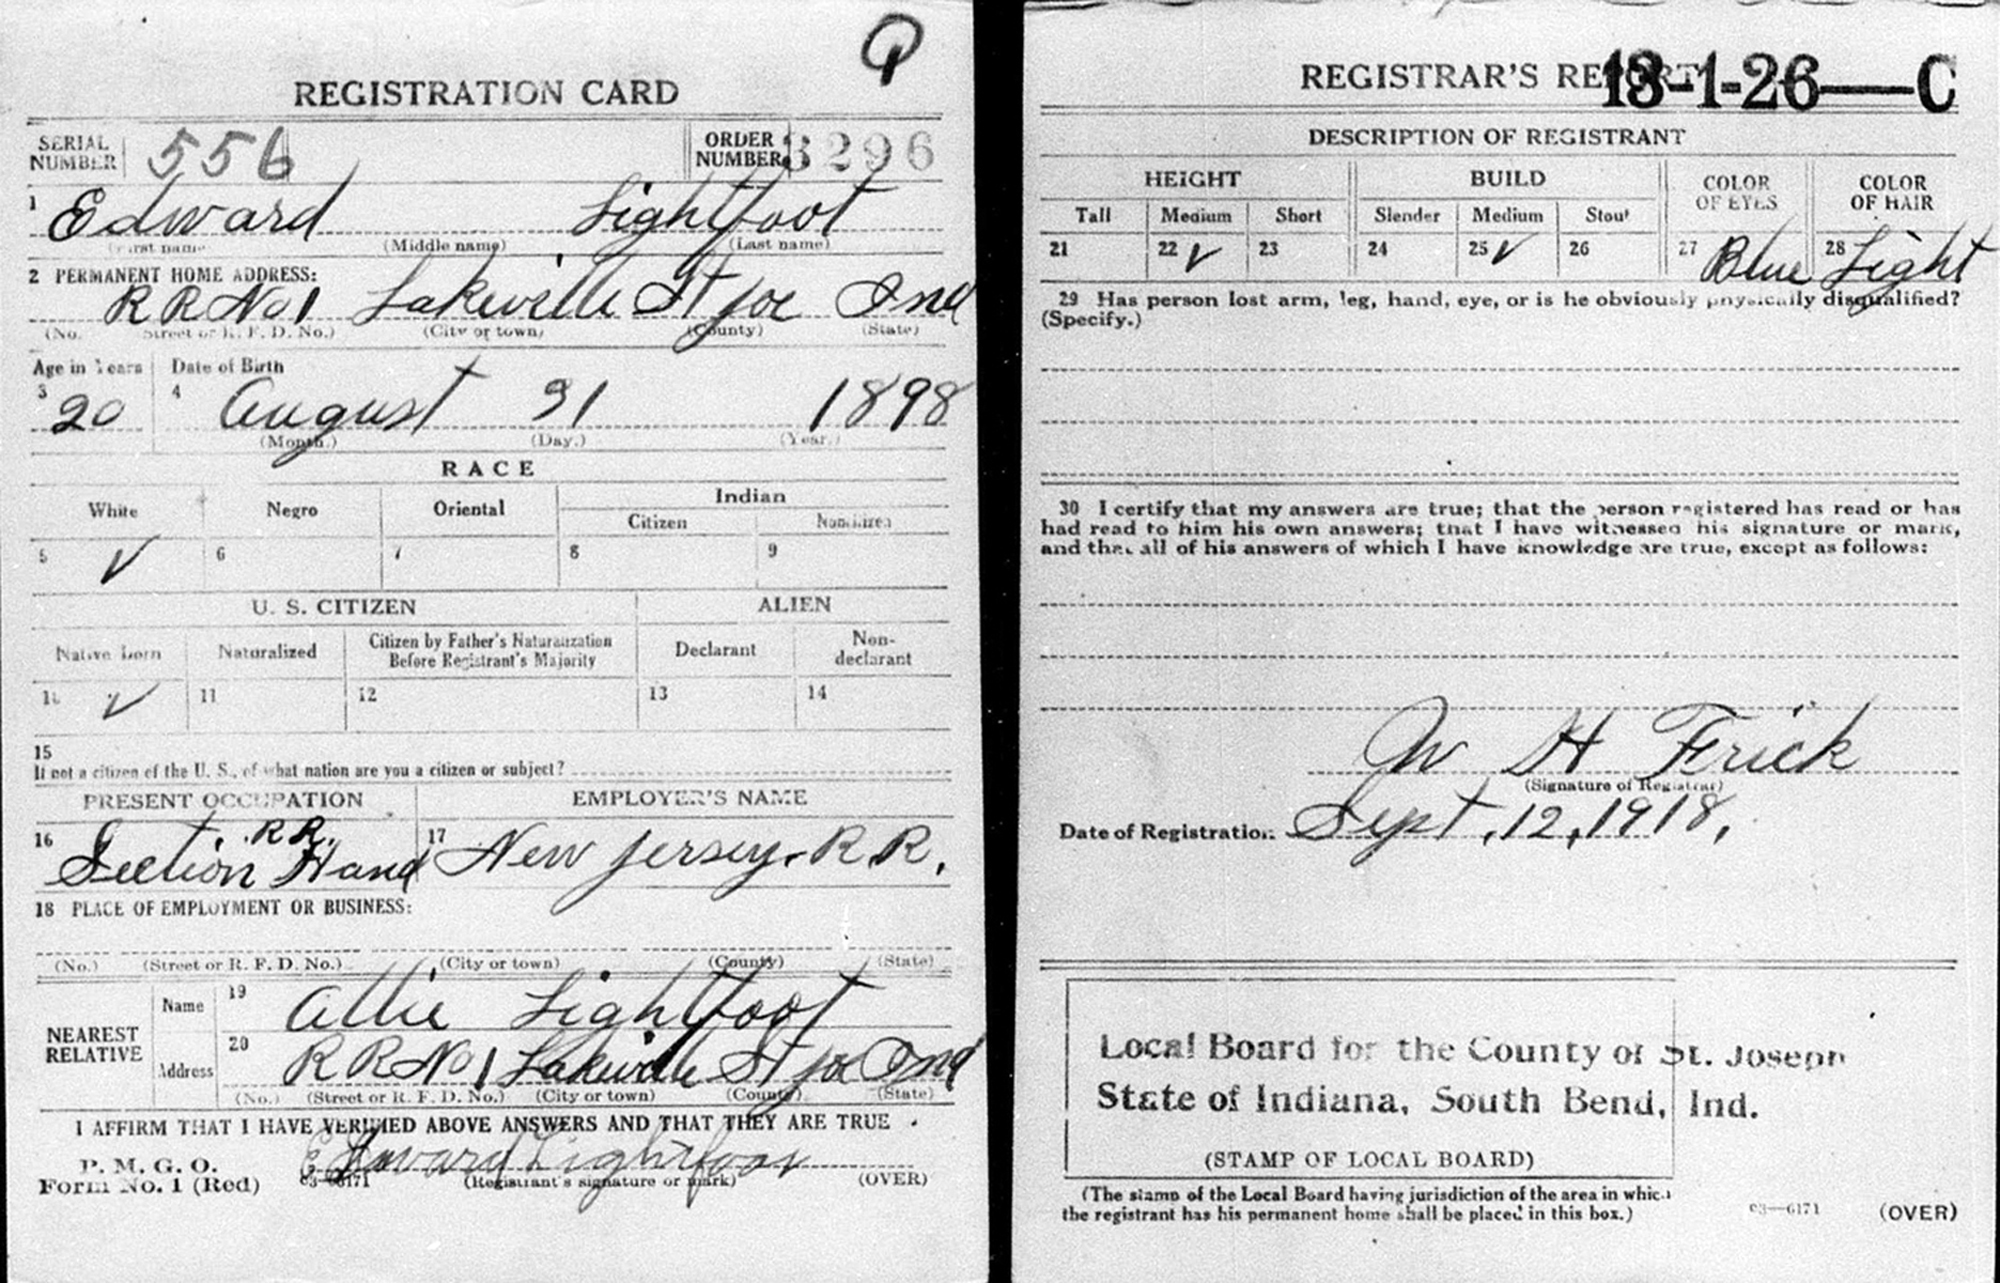 REGISTRATION CARD
SERIAL NUMBER 556 ORDER NUMBER 3296
1 Edward Lightfoot
(First name) (Middle name) (Last name)
2 PERMANENT HOME ADDRESS:
R R No 1 Lakeville St Joe Ind
(No. Street or R. F. D. No.) (City or town) (County) (State)
Age in Years Date of Birth
3 20 4 August 31 1898
(Month.) (Day.) (Year.)
RACE
White Negro Oriental Indian
Citizen Noncitizen
5 ✓ 6 7 8 9
U. S. CITIZEN ALIEN
Native born Naturalized Citizen by Father's Naturalization Before Registrant's Majority Declarant Non-declarant
10 ✓ 11 12 13 14
15
If not a citizen of the U. S., of what nation are you a citizen or subject?
PRESENT OCCUPATION EMPLOYER'S NAME
16 R R. Section Hand 17 New Jersey R.R.
18 PLACE OF EMPLOYMENT OR BUSINESS:
(No.) (Street or R. F. D. No.) (City or town) (County) (State)
NEAREST RELATIVE
Name 19 Allie Lightfoot
Address 20 R R No 1 Lakeville St Joe Ind
(No.) (Street or R. F. D. No.) (City or town) (County) (State)
I AFFIRM THAT I HAVE VERIFIED ABOVE ANSWERS AND THAT THEY ARE TRUE
P. M. G. O.
Form No. 1 (Red) 03—6171 Edward Lightfoot
(Registrant's signature or mark) (OVER)
REGISTRAR'S REPORT 13-1-26—C
DESCRIPTION OF REGISTRANT
HEIGHT BUILD COLOR OF EYES COLOR OF HAIR
Tall Medium Short Slender Medium Stout
21 22 ✓ 23 24 25 ✓ 26 27 Blue 28 Light
29 Has person lost arm, leg, hand, eye, or is he obviously physically disqualified?
(Specify.)
30 I certify that my answers are true; that the person registered has read or has
had read to him his own answers; that I have witnessed his signature or mark,
and that all of his answers of which I have knowledge are true, except as follows:
W H Frick
(Signature of Registrar)
Date of Registration Sept, 12, 1918,
Local Board for the County of St. Joseph
State of Indiana, South Bend, Ind.
(STAMP OF LOCAL BOARD)
(The stamp of the Local Board having jurisdiction of the area in which
the registrant has his permanent home shall be placed in this box.)
03—6171 (OVER)